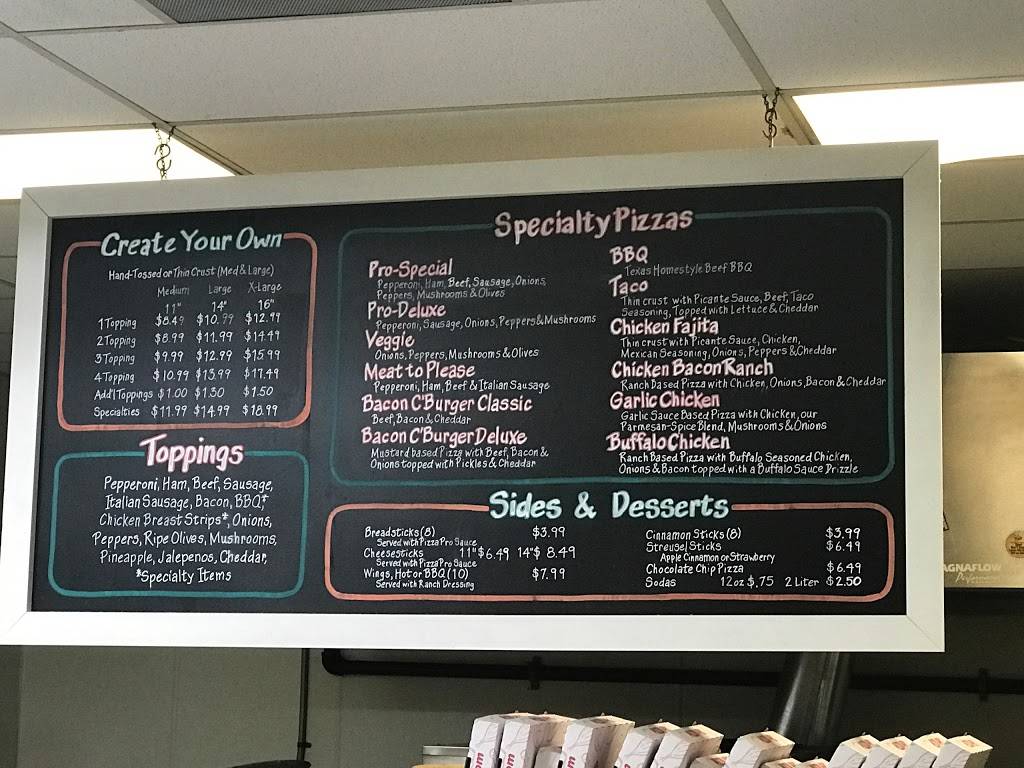 Create Your Own
Hand-Tossed or Thin Crust (Med & Large)
Medium Large X-Large
11" 14" 16"
1 Topping $8.49 $10.99 $12.99
2 Topping $8.99 $11.99 $14.49
3 Topping $9.99 $12.99 $15.99
4 Topping $10.99 $13.99 $17.49
Add'l Toppings $1.00 $1.30 $1.50
Specialties $11.99 $14.99 $18.99
Toppings
Pepperoni, Ham, Beef, Sausage,
Italian Sausage, Bacon, BBQ*,
Chicken Breast Strips*, Onions,
Peppers, Ripe Olives, Mushrooms,
Pineapple, Jalepenos, Cheddar,
*Specialty Items
Specialty Pizzas
Pro-Special
Pepperoni, Ham, Beef, Sausage, Onions,
Peppers, Mushrooms & Olives
Pro-Deluxe
Pepperoni, Sausage, Onions, Peppers & Mushrooms
Veggie
Onions, Peppers, Mushrooms & Olives
Meat to Please
Pepperoni, Ham, Beef & Italian Sausage
Bacon C'Burger Classic
Beef, Bacon & Cheddar
Bacon C'Burger Deluxe
Mustard based Pizza with Beef, Bacon &
Onions topped with Pickles & Cheddar
BBQ
Texas Homestyle Beef BBQ
Taco
Thin crust with Picante Sauce, Beef, Taco
Seasoning, Topped with Lettuce & Cheddar
Chicken Fajita
Thin crust with Picante Sauce, Chicken,
Mexican Seasoning, Onions, Peppers & Cheddar
Chicken Bacon Ranch
Ranch Based Pizza with Chicken, Onions, Bacon & Cheddar
Garlic Chicken
Garlic Sauce Based Pizza with Chicken, our
Parmesan-Spice Blend, Mushrooms & Onions
Buffalo Chicken
Ranch Based Pizza with Buffalo Seasoned Chicken,
Onions & Bacon topped with a Buffalo Sauce Drizzle
Sides & Desserts
Breadsticks (8) $3.99
Served with Pizza Pro Sauce
Cheesesticks 11" $6.49 14" $8.49
Served with Pizza Pro Sauce
Wings, Hot or BBQ (10) $7.99
Served with Ranch Dressing
Cinnamon Sticks (8) $3.99
Streusel Sticks $6.49
Apple Cinnamon or Strawberry
Chocolate Chip Pizza $6.49
Sodas 12oz $.75 2 Liter $2.50
AGNAFLOW
Performance